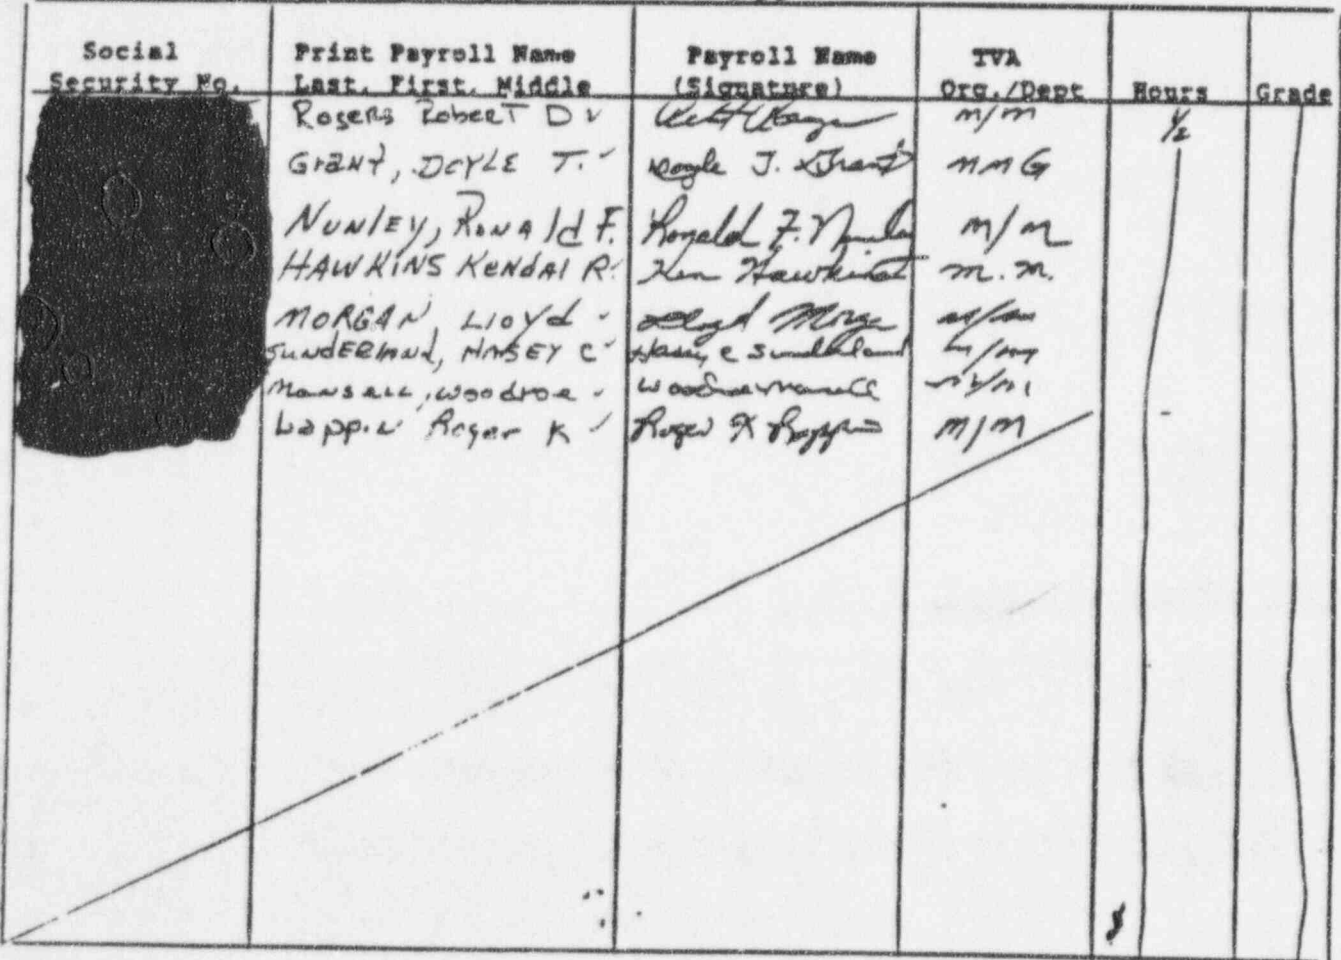 Social Print Payroll Name Payroll Name TVA
Security No. Last, First, Middle (Signature) Org./Dept Hours Grade
Rogers Robert D m/m 1/2
Grant, Doyle T. Doyle T. Grant mmG
Nunley, Ronald F. Ronald F. Nunley m/m
HAWKINS Kendal R. Ken Hawkins m.m.
MORGAN, Lloyd Lloyd Morgan m/m
SUNDERLAND, HASEY C Hasey C Sunderland m/m
Mansell, Woodroe Woodroe Mansell m/m
Lappin Roger K Roger K Lappin m/m